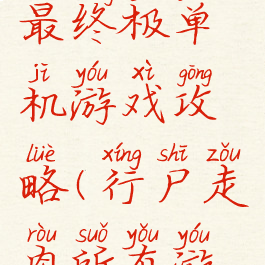 最终极单
jī yóu xì gōng
机游戏攻
lüè xíng shī zǒu
略(行尸走
ròu suǒ yǒu yóu
肉所有游